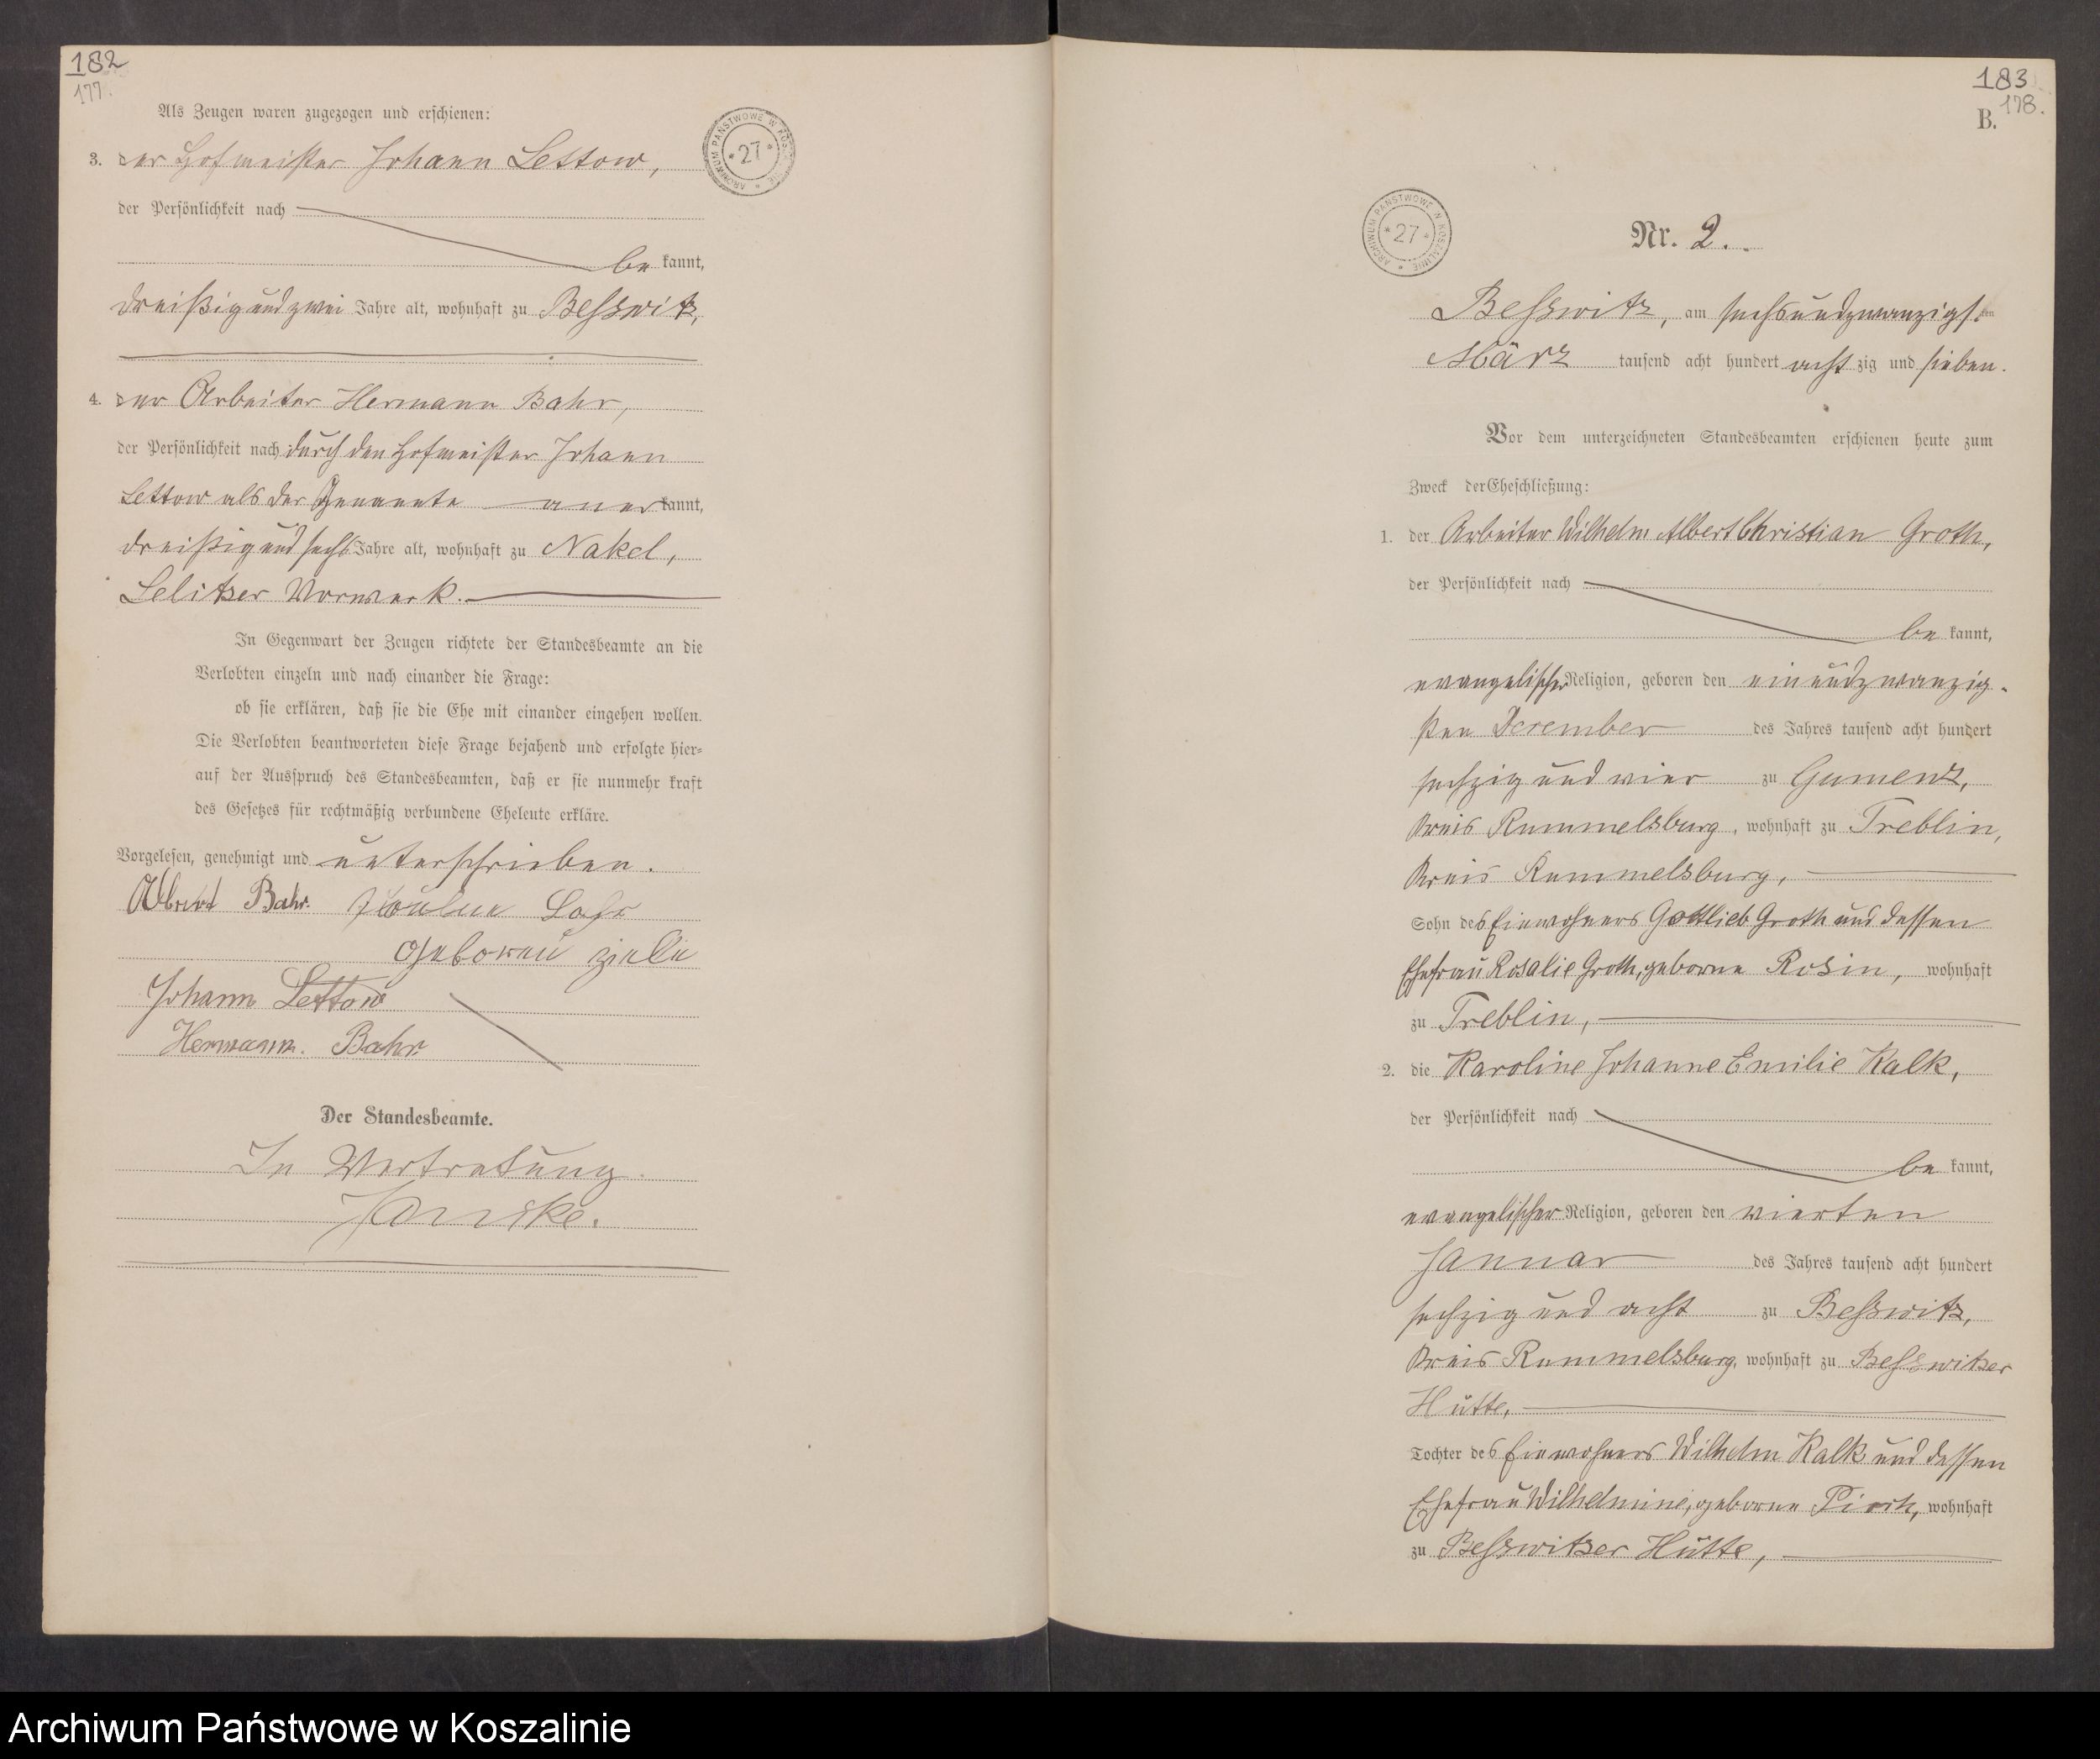 182
177.
Als Zeugen waren zugezogen und erschienen:
ARCHIWUM PAŃSTWOWE W KOSZALINIE * 27 *
3. der Hofmeister Johann Lettow,
der Persönlichkeit nach
be kannt,
dreißig und zwei Jahre alt, wohnhaft zu Besswitz,
4. der Arbeiter Hermann Bahr,
der Persönlichkeit nach durch den Hofmeister Johann
Lettow als der Genannte anerkannt,
dreißig und sechs Jahre alt, wohnhaft zu Nakel,
Selitzer Vorwerk.
In Gegenwart der Zeugen richtete der Standesbeamte an die
Verlobten einzeln und nach einander die Frage:
ob sie erklären, daß sie die Ehe mit einander eingehen wollen.
Die Verlobten beantworteten diese Frage bejahend und erfolgte hier=
auf der Ausspruch des Standesbeamten, daß er sie nunmehr kraft
des Gesetzes für rechtmäßig verbundene Eheleute erkläre.
Vorgelesen, genehmigt und unterschrieben.
Albert Bahr.
geboren
Johann Lettow
Hermann. Bahr.
Der Standesbeamte.
In Vertretung.
183
178.
B.
ARCHIWUM PAŃSTWOWE W KOSZALINIE * 27 *
Nr. 2.
Besswitz, am sechsundzwanzigsten
März tausend acht hundert acht zig und sieben.
Vor dem unterzeichneten Standesbeamten erschienen heute zum
Zweck der Eheschließung:
1. der Arbeiter Wilhelm Albert Christian Groth,
der Persönlichkeit nach
be kannt,
evangelischer Religion, geboren den einundzwanzig-
sten December des Jahres tausend acht hundert
sechzig und vier zu Gumenz,
Kreis Rummelsburg, wohnhaft zu Treblin,
Kreis Rummelsburg,
Sohn des Einwohners Gottlieb Groth und dessen
Ehefrau Rosalie Groth, geborne Rosin, wohnhaft
zu Treblin,
2. die Karoline Johanne Emilie Kalk,
der Persönlichkeit nach
be kannt,
evangelischer Religion, geboren den vierten
Januar des Jahres tausend acht hundert
sechzig und acht zu Besswitz,
Kreis Rummelsburg, wohnhaft zu Besswitzer
Hütte,
Tochter des Einwohners Wilhelm Kalk und dessen
Ehefrau Wilhelmine, geborne Pirch, wohnhaft
zu Besswitzer Hütte,
Archiwum Państwowe w Koszalinie